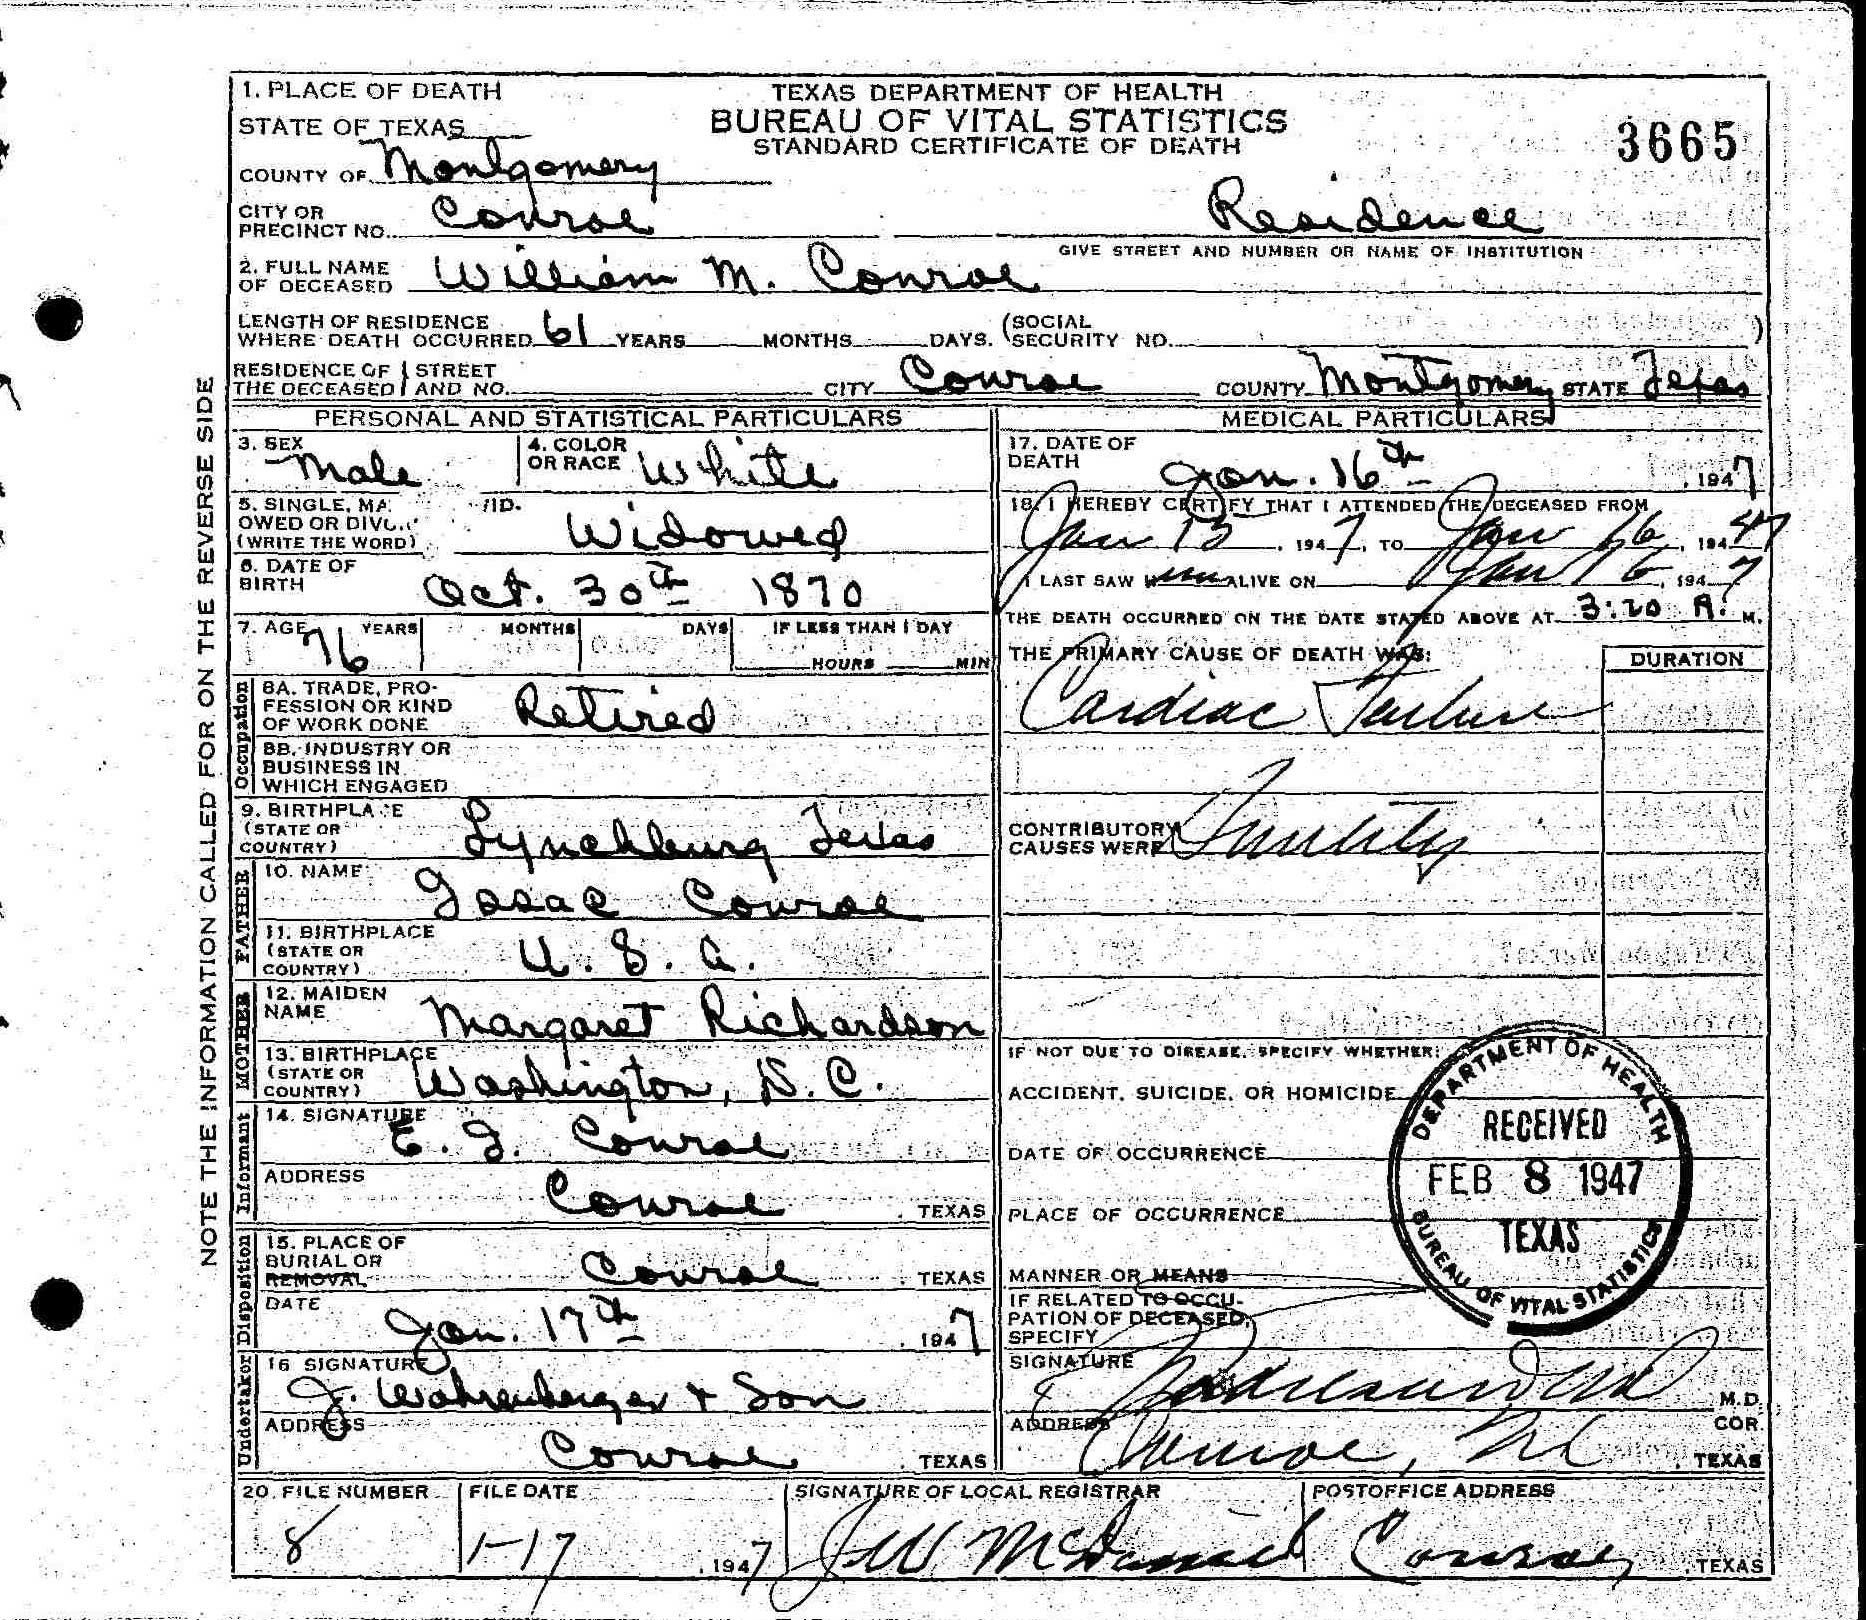 1. PLACE OF DEATH
STATE OF TEXAS
COUNTY OF Montgomery
CITY OR PRECINCT NO. Conroe
TEXAS DEPARTMENT OF HEALTH
BUREAU OF VITAL STATISTICS
STANDARD CERTIFICATE OF DEATH
3665
Residence
GIVE STREET AND NUMBER OR NAME OF INSTITUTION
2. FULL NAME OF DECEASED William M. Conroe
LENGTH OF RESIDENCE WHERE DEATH OCCURRED 61 YEARS MONTHS DAYS. (SOCIAL SECURITY NO. )
RESIDENCE OF THE DECEASED STREET AND NO. CITY Conroe COUNTY Montgomery STATE Texas
NOTE THE INFORMATION CALLED FOR ON THE REVERSE SIDE
PERSONAL AND STATISTICAL PARTICULARS
3. SEX Male
4. COLOR OR RACE White
5. SINGLE, OWED OR (WRITE THE WORD) Widowed
6. DATE OF BIRTH Oct. 30th 1870
7. AGE 76 YEARS MONTHS DAYS IF LESS THAN 1 DAY
HOURS MIN
Occupation
8A. TRADE, PROFESSION OR KIND OF WORK DONE Retired
8B. INDUSTRY OR BUSINESS IN WHICH ENGAGED
9. BIRTHPLACE (STATE OR COUNTRY) Lynchburg Texas
FATHER
10. NAME Isaac Conroe
11. BIRTHPLACE (STATE OR COUNTRY) U. S. A.
MOTHER
12. MAIDEN NAME Margaret Richardson
13. BIRTHPLACE (STATE OR COUNTRY) Washington, D. C.
Informant
14. SIGNATURE Conroe
ADDRESS Conroe, TEXAS
Disposition
15. PLACE OF BURIAL OR REMOVAL Conroe, TEXAS
DATE Jan. 17th, 1947
Undertaker
16 SIGNATURE J. Wahrenberger + Son
ADDRESS Conroe, TEXAS
MEDICAL PARTICULARS
17. DATE OF DEATH Jan. 16th, 1947
18. I HEREBY CERTIFY THAT I ATTENDED THE DECEASED FROM
Jan 13, 1947, TO Jan 16, 1947
I LAST SAW him ALIVE ON Jan 16, 1947
THE DEATH OCCURRED ON THE DATE STATED ABOVE AT 3:20 A. M.
THE PRIMARY CAUSE OF DEATH WAS: DURATION
Cardiac Failure
CONTRIBUTORY CAUSES WERE
IF NOT DUE TO DISEASE, SPECIFY WHETHER:
ACCIDENT, SUICIDE, OR HOMICIDE
DATE OF OCCURRENCE
PLACE OF OCCURRENCE
MANNER OR MEANS
IF RELATED TO OCCUPATION OF DECEASED, SPECIFY
DEPARTMENT OF HEALTH
RECEIVED
FEB 8 1947
TEXAS
BUREAU OF VITAL STATISTICS
SIGNATURE M.D.
COR.
ADDRESS Conroe, TEXAS
20. FILE NUMBER 8
FILE DATE 1-17, 1947
SIGNATURE OF LOCAL REGISTRAR J W McDaniel
POSTOFFICE ADDRESS Conroe, TEXAS